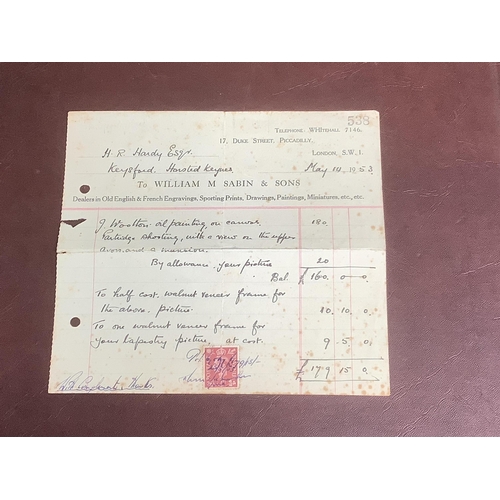 538
TELEPHONE WHITEHALL 7146.
17, DUKE STREET, PICCADILLY,
H. R. Hardy Esqr. LONDON, S.W.1.
Keysford, Horsted Keynes May 14, 1953
To WILLIAM M SABIN & SONS
Dealers in Old English & French Engravings, Sporting Prints, Drawings, Paintings, Miniatures, etc., etc.
J Wootton oil painting on canvas, 180
Partridge Shooting, with a view on the upper
avon and a mansion.
By allowance, your picture 20
Bal. £ 160 0 0
To half cost, walnut veneer frame for
the above picture. 10 10 0
To one walnut veneer frame for
your tapestry picture, at cost. 9 5 0
£ 179 15 0